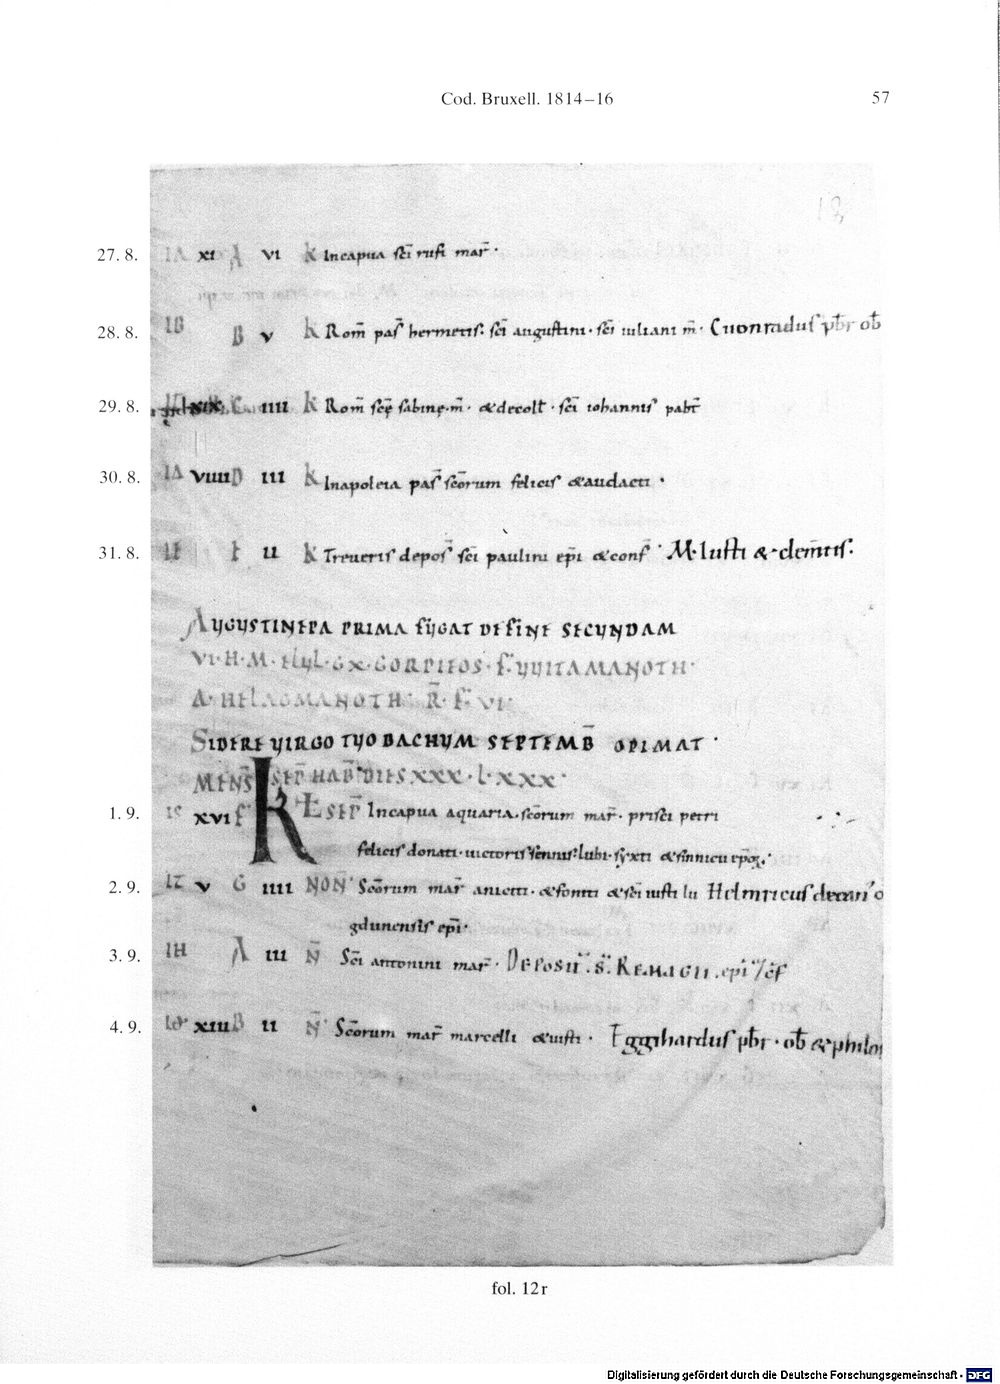 Cod. Bruxell. 1814–16 57
18
27. 8. xi A vi K Incapua sc̄i rufi mar̄ ·
28. 8. IB B v K Rom̄ pas̄ hermetis · sc̄i augustini · sc̄i iuliani m̄ · Cuonradus pb̄r ob̄
29. 8. xix C iiii K Rom̄ sc̄ę sabinę · m̄ · & decoll̄ · sc̄i iohannis pabt̄
30. 8. viiii D iii K Inapoleia pas̄ sc̄orum felicis & audacti ·
31. 8. ii K Treveris depos̄ sc̄i paulini ep̄i & conf̄ · M · Iusti & · clem̄tis ·
AUGUSTI NEPA PRIMA FUGAT DE FINE SECUNDAM
SIDERE VIRGO TUO BACHUM SEPTEMB̄ OPIMAT ·
MENS̄ SEP̄ HAB̄ DIES XXX · L · XXX ·
1. 9. xvi F K SEP̄ Incapua aquaria · sc̄orum mar̄ · prisci petri
felicis donati · uictoris
2. 9. v G iiii NON̄ Sc̄orum mar̄ & sc̄i iusti lu Helmricus
gdunensis ep̄i ·
3. 9. A iii N̄ Sc̄i antonini mar̄ · REMAGII · ep̄i
4. 9. xiii B ii N̄ Sc̄orum mar̄ marcelli & iusti · Eggihardus pb̄r · ob̄
fol. 12 r
Digitalisierung gefördert durch die Deutsche Forschungsgemeinschaft - DFG